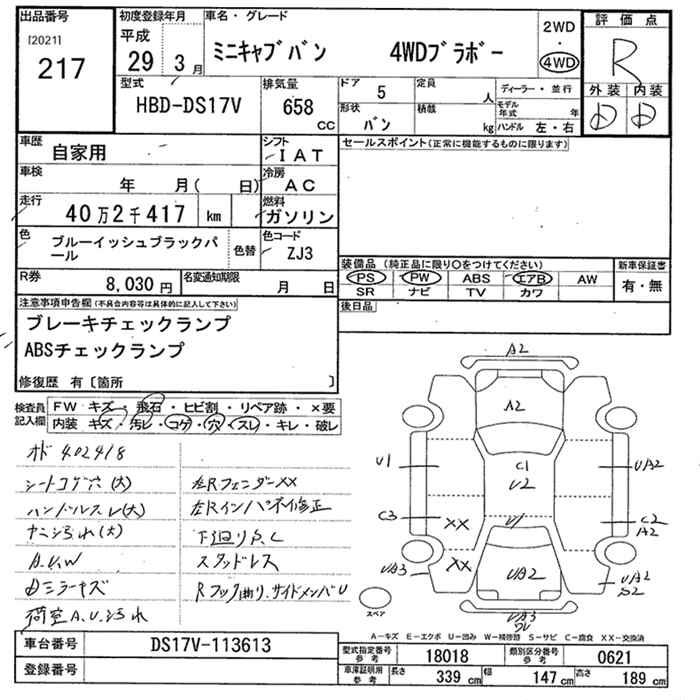 出品番号
[2021]
217
初度登録年月
平成
29 3 月
車名・グレード
ミニキャブバン 4WDブラボー
2WD
・
4WD
評価点
R
外装 内装
D D
型式
HBD-DS17V
排気量
658
CC
ドア
5
定員
人
形状
バン
積載
kg
ディーラー・並行
モデル年式 年
ハンドル 左・右
車歴
自家用
シフト
IAT
車検
年 月( 日)
冷房
AC
走行
40万2千417 km
燃料
ガソリン
色
ブルーイッシュブラックパール
色替
色コード
ZJ3
R券
8,030 円
名変通知期限
月 日
セールスポイント(正常に機能するものに限ります)
装備品(純正品に限り○をつけてください)
PS PW ABS エアB AW
SR ナビ TV カワ
新車保証書
有・無
後日品
注意事項申告欄(不具合内容等は具体的に記入して下さい)
ブレーキチェックランプ
ABSチェックランプ
修復歴 有〔箇所 〕
検査員記入欄
FW キズ・飛石・ヒビ割・リペア跡・×要
内装 キズ・汚レ・コゲ・穴・スレ・キレ・破レ
オド 402418
シートコゲ穴(大)
ハンドルスレ(大)
ヤニ汚れ(大)
A.U.W
Dミラーキズ
荷室A.U.汚れ
左RフェンダーXX
左Rインパネ修正
下廻りS.C
スタッドレス
Rフック曲り.サイドメンバU
A2
A2
U1
C1
U2
UA2
C3
XX
U1
C2
A2
UA3
XX
UA2
UA2
S2
UA3
スペア
A-キズ E-エクボ U-凹み W-補修跡 S-サビ C-腐食 XX-交換済
車台番号
DS17V-113613
登録番号
型式指定番号 参考
18018
類別区分番号 参考
0621
車庫証明用 参考
長さ 339 cm
幅 147 cm
高さ 189 cm